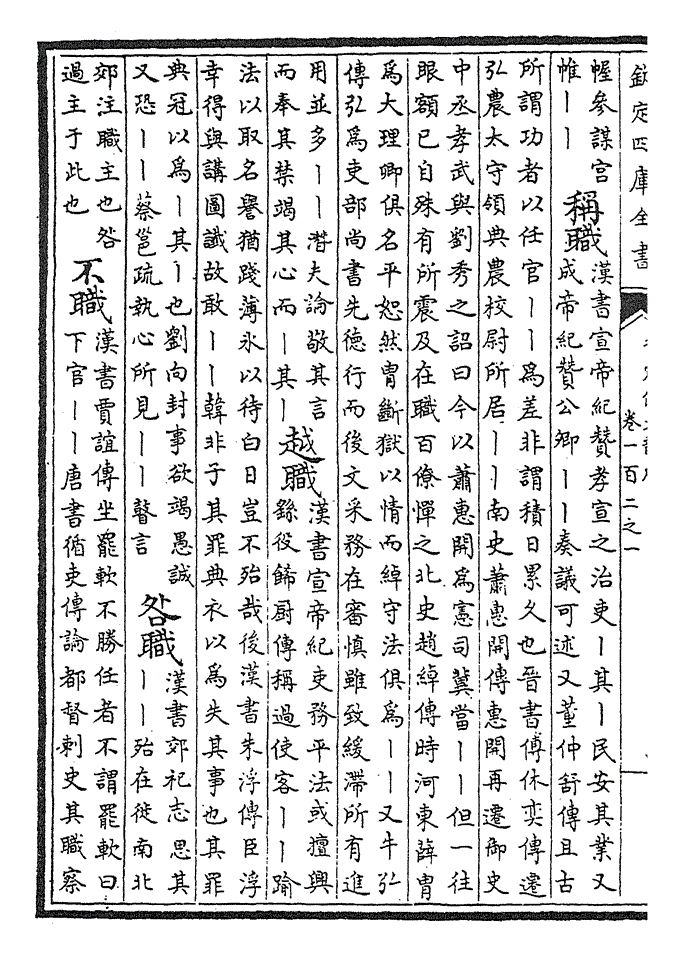 欽定四庫全書
卷一百二之一
幄參謀宫
帷丨丨
稱職
漢書宣帝紀贊孝宣之治吏丨其丨民安其業又
成帝紀贊公卿丨丨奏議可述又董仲舒傳且古
所謂功者以任官丨丨為差非謂積日累久也晉書傅休奕傳遷
弘農太守領典農校尉所居丨丨南史蕭惠開傳惠開再遷御史
中丞孝武與劉秀之詔曰今以蕭惠開為憲司冀當丨丨但一往
眼額已自殊有所震及在職百僚憚之北史趙綽傳時河東薛胄
為大理卿俱名平恕然胄斷獄以情而綽守法俱為丨丨又牛弘
傳弘為吏部尚書先德行而後文采務在審慎雖致緩滯所有進
用並多丨丨潛夫論敬其言
而奉其禁竭其心而丨其丨
越職
漢書宣帝紀吏務平法或擅興
繇役飾厨傳稱過使客丨丨踰
法以取名譽猶踐薄氷以待白日豈不殆哉後漢書朱浮傳臣浮
幸得與講圖讖故敢丨丨韓非子其罪典衣以為失其事也其罪
典冠以為丨其丨也劉向封事欲竭愚誠
又恐丨丨蔡邕疏執心所見丨丨瞽言
咎職
漢書郊祀志思其
丨丨殆在徙南北
郊注職主也咎
過主于此也
不職
漢書賈誼傳坐罷軟不勝任者不謂罷軟曰
下官丨丨唐書循吏傳論都督刺史其職察